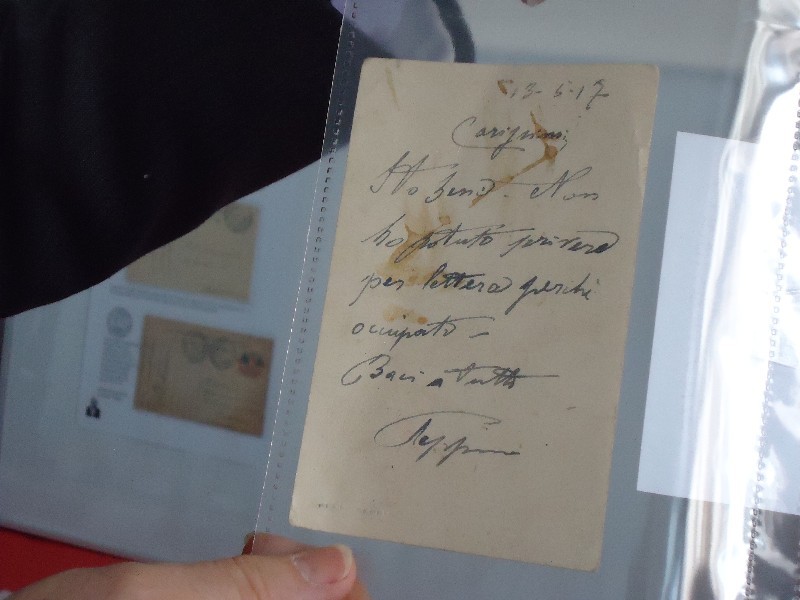 13-5-17
Carissimi
Sto bene. Non
ho potuto scrivere
per lettera perché
occupato -
Baci a tutti
Peppino